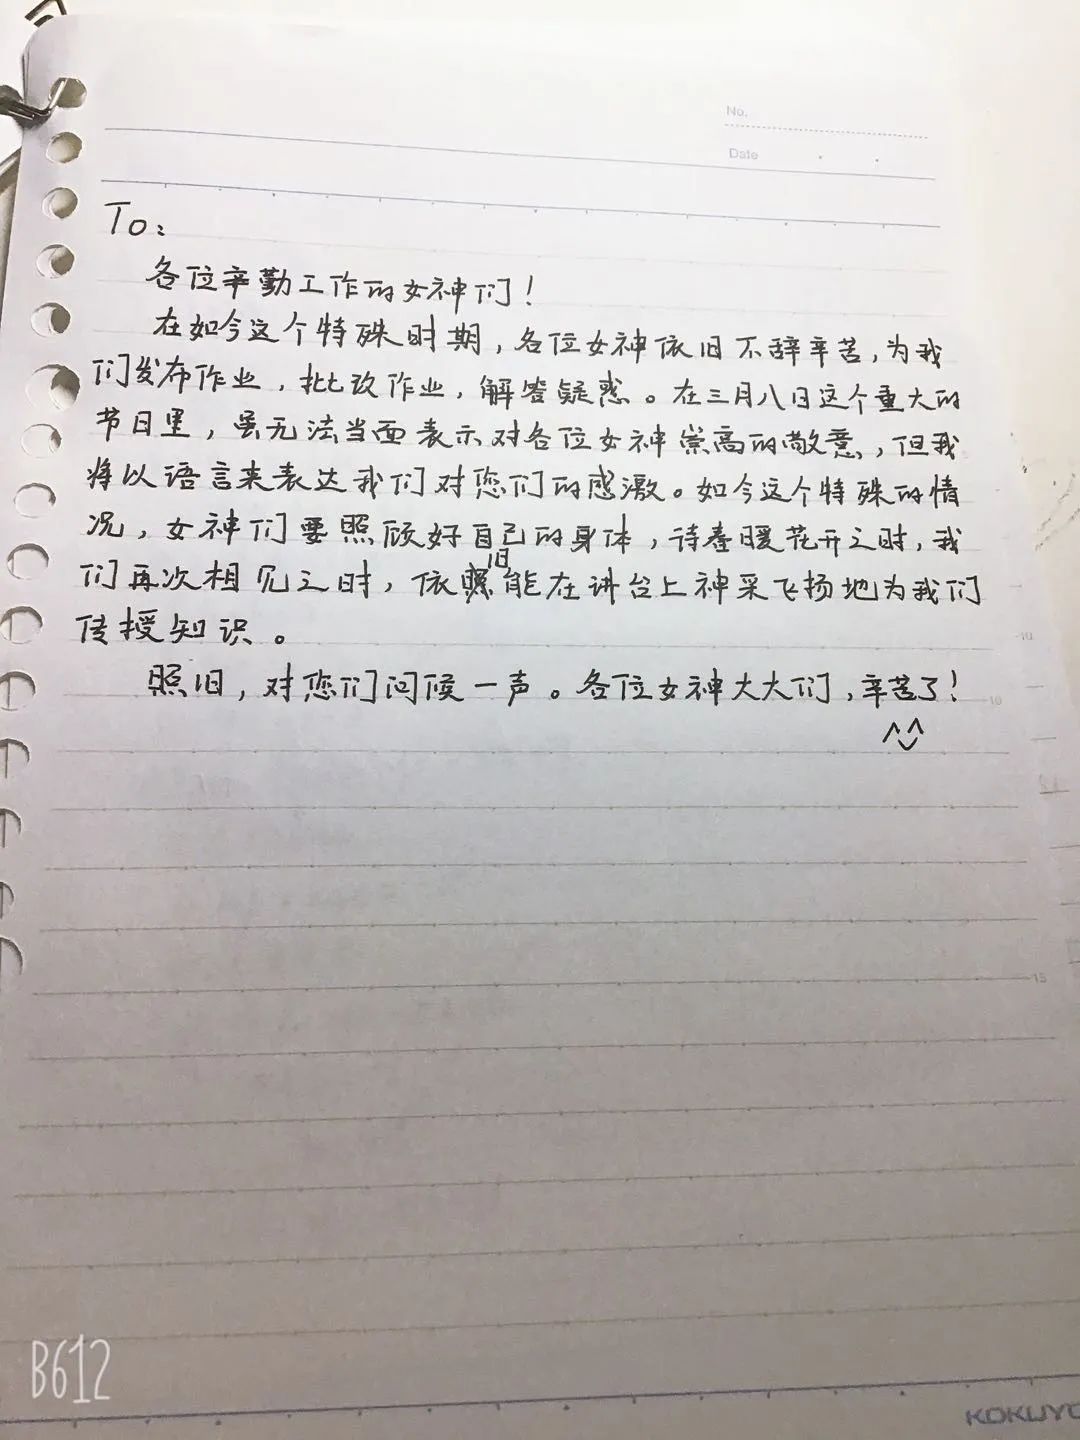 No.
Date
To:
各位辛勤工作的女神们!
在如今这个特殊时期,各位女神依旧不辞辛苦,为我
们发布作业,批改作业,解答疑惑。在三月八日这个重大的
节日里,虽无法当面表示对各位女神崇高的敬意,但我
将以语言来表达我们对您们的感激。如今这个特殊的情
况,女神们要照顾好自己的身体,待春暖花开之时,我
们再次相见之时,依旧能在讲台上神采飞扬地为我们
传授知识。
照旧,对您们问候一声。各位女神大大们,辛苦了!
10
15
B612
KOKUYO